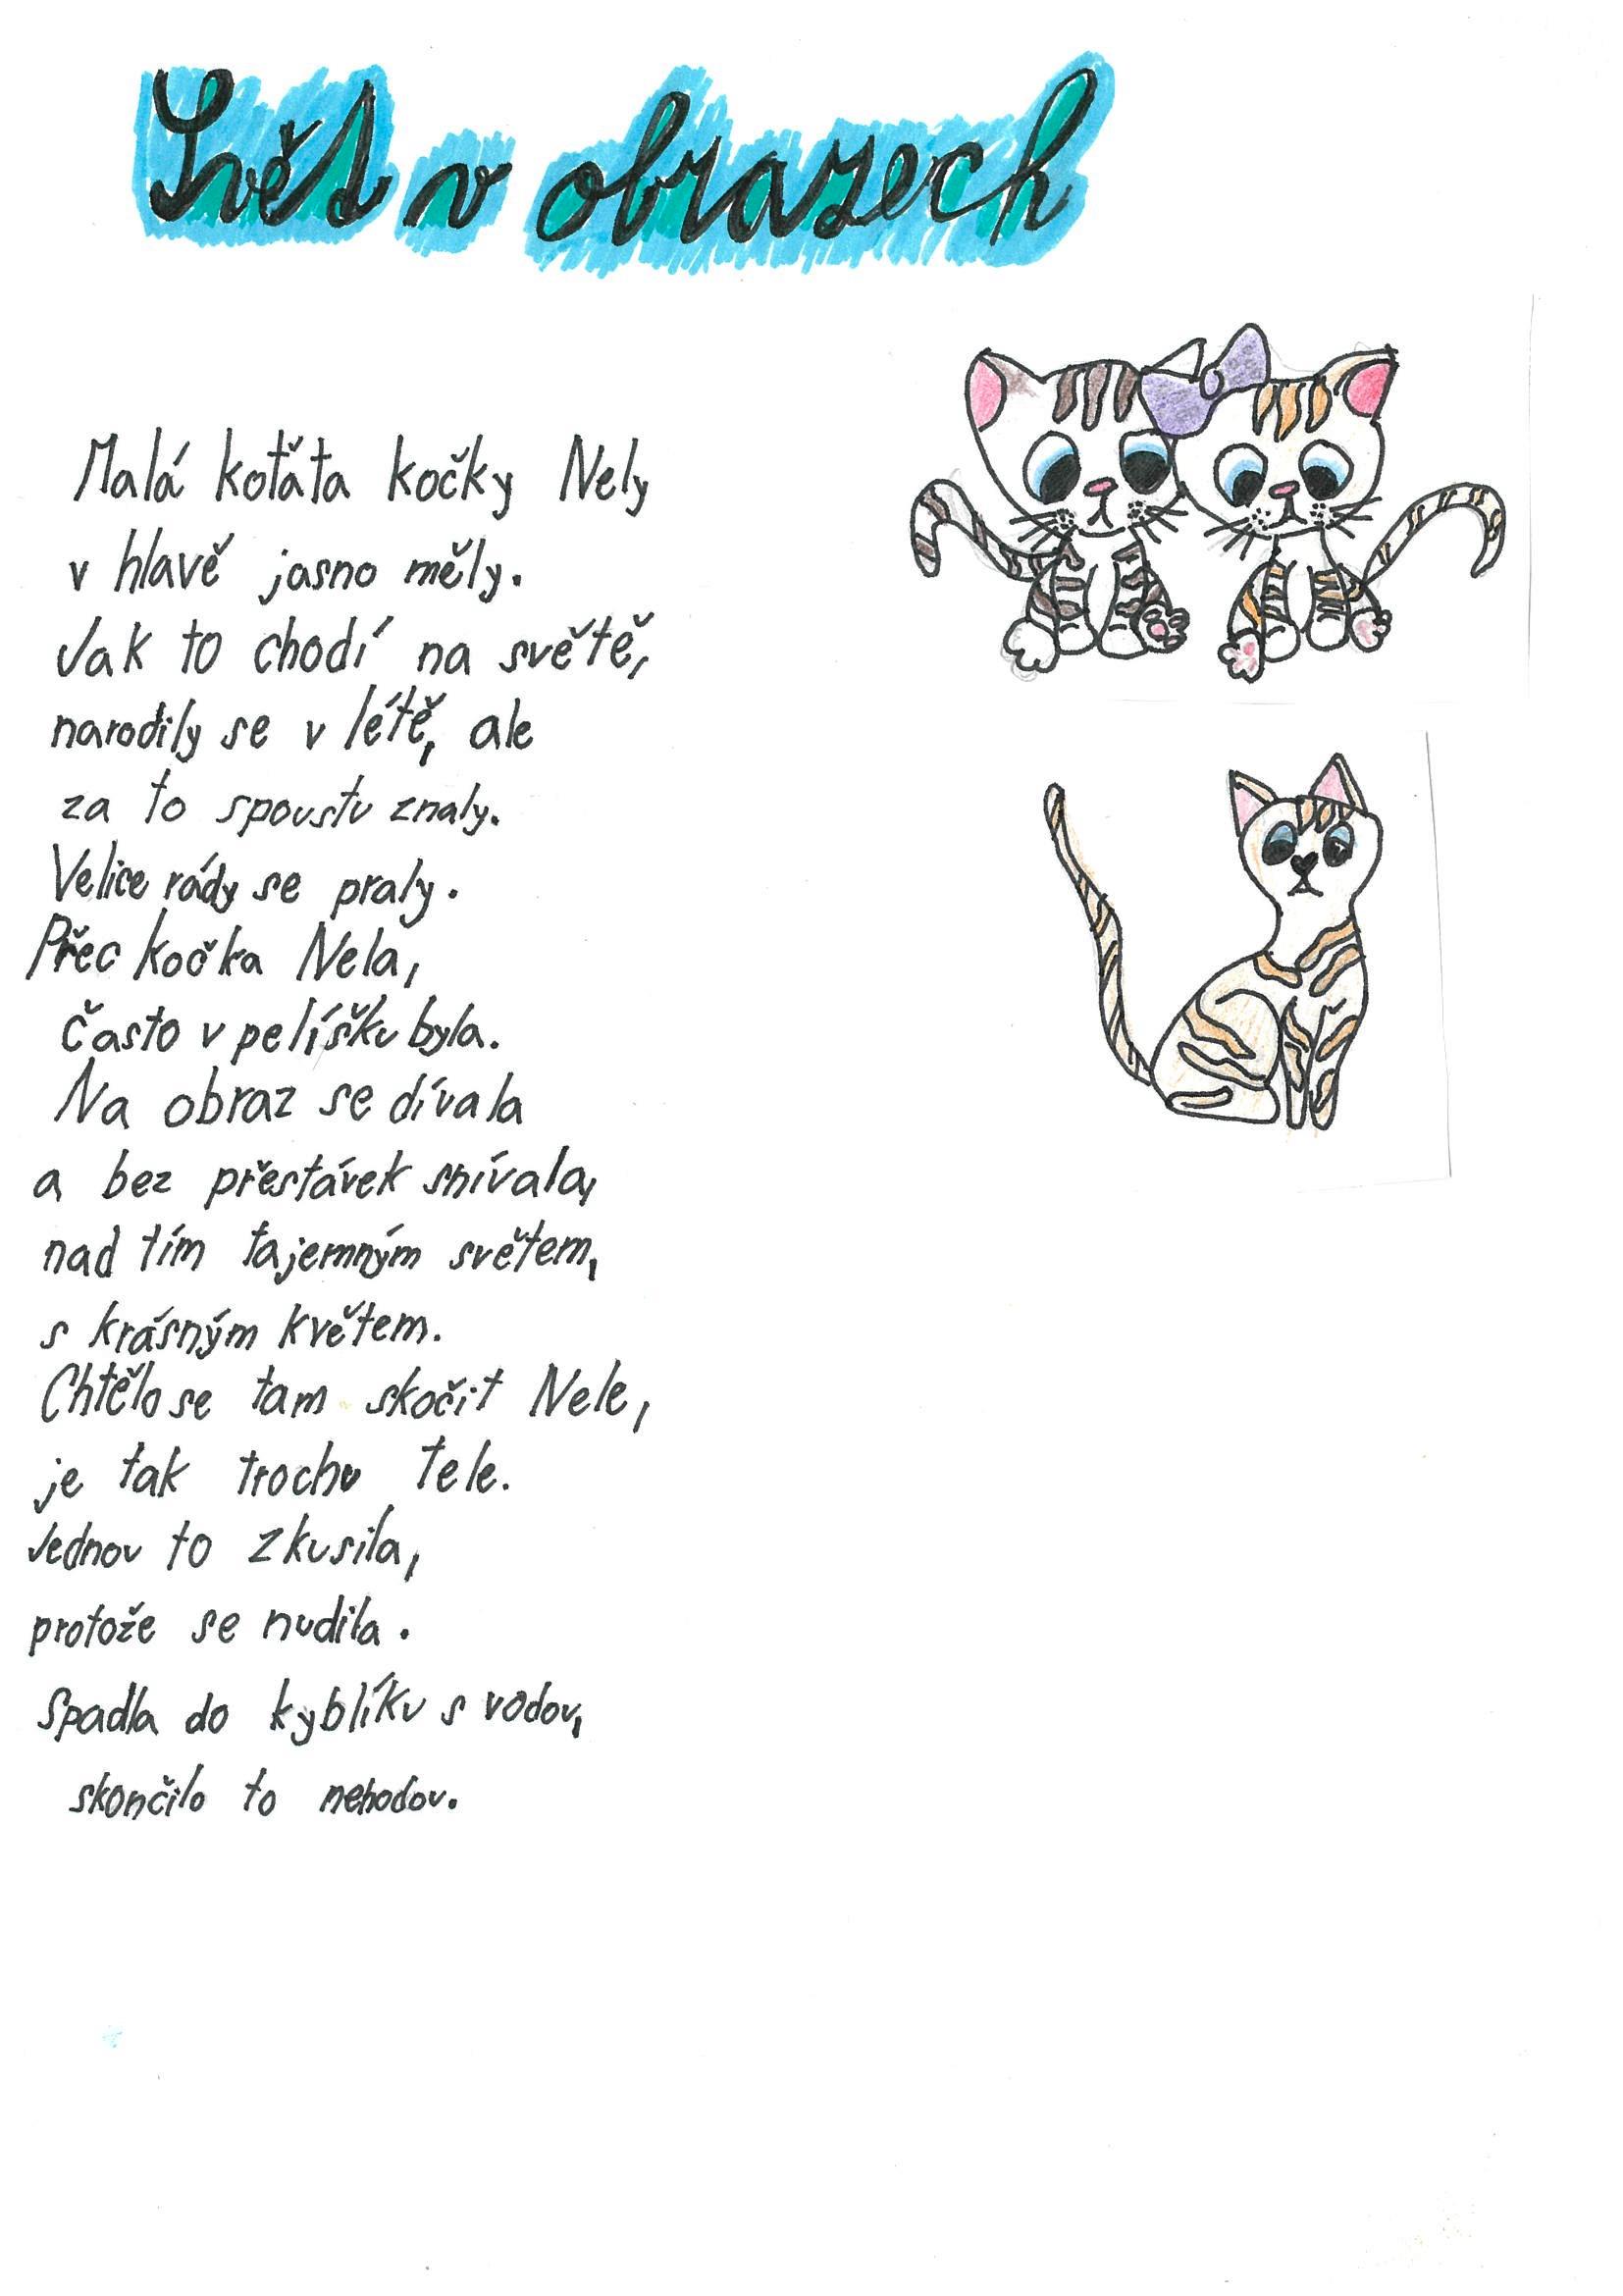 Svět v obrazech
Malá koťata kočky Nely
v hlavě jasno měly.
Jak to chodí na světě,
narodily se v létě, ale
za to spoustu znaly.
Velice rády se praly.
Přec kočka Nela,
často v pelíšku byla.
Na obraz se dívala
a bez přestávek snívala,
nad tím tajemným světem,
s krásným květem.
Chtělo se tam skočit Nele,
je tak trochu tele.
Jednou to zkusila,
protože se nudila.
Spadla do kyblíku s vodou,
skončilo to nehodou.